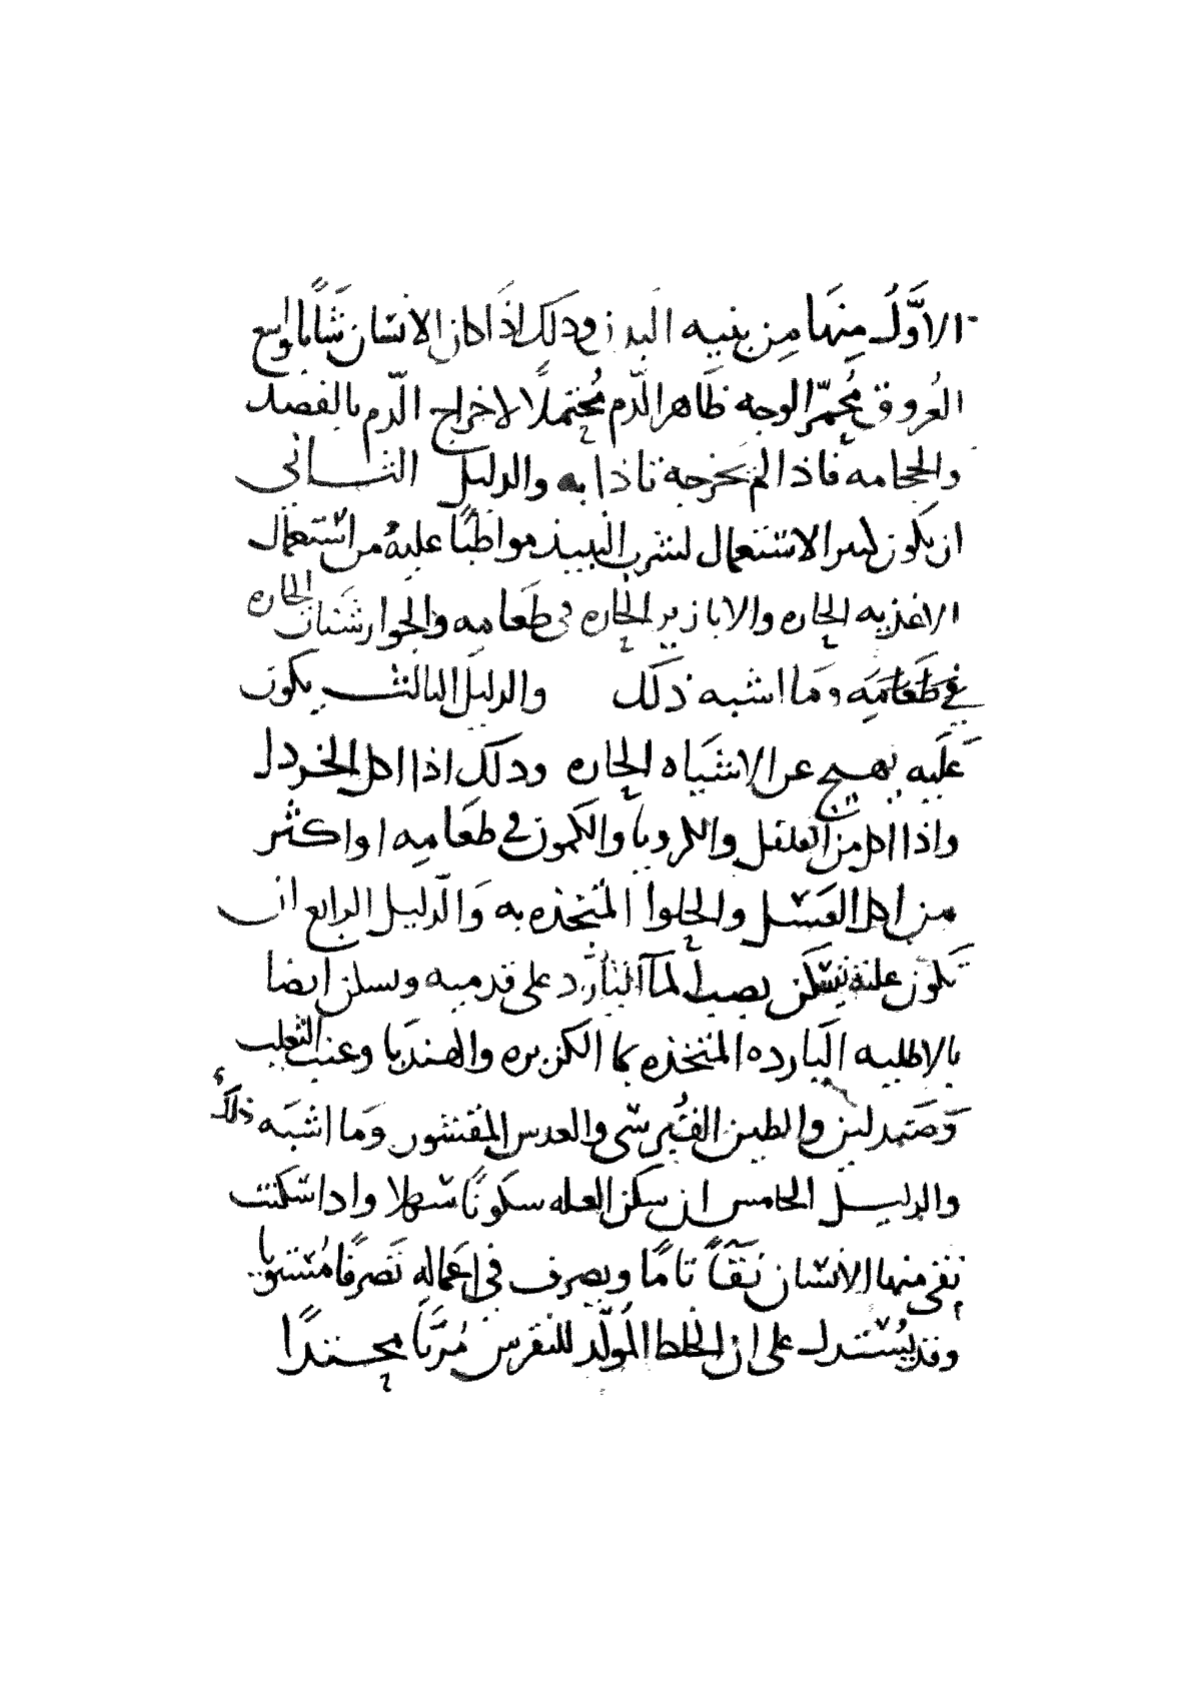 الاَوَّلُ مِنهَا مِن بنيه البدن ودلك اذَا كان الانسان شَابًا واسع
العُروق مُحمِرّ الوجه ظَاهر الدّم مُحتملًا لاخراج الدّم بالفصد
والحجامه فاذا لم يخرجه تاذا به والدليل الثــانى
ان يكون كثير الاستعمال لشرب النبيذ مواظبًا عليهُ من استعمال
الاغذيه الحاره والابازير الحاره فى طعَامِه والجوارشنات الحاره
وَمَا اشبه ذلَك والدليل الثالث يكون
عَليه يهيج عن الاشيَاه الحاره ودلك اذا اكل الخردل
واذا اكل من الفلفل والكرويا والكَمون فى طعَامِه او اكثر
من اكل العَسَل والحلوا المُتخذه به وَالدّليل الرابع ان
تكون علته تسكن بصب المآ البَارد على قدميه وتسكن ايضا
بالاطليه البَارده المُتخذه بما الكزبره والهندَبا وعنب الثعلب
وَصَندلين والطين القُبرسى والعدس المُقشور وَما اشبَه ذلك
والدليــل الخامس ان سكن العله سكونًا سَهلا واداسَكنت
نقى منها الانسَان نَقَآً تامًا ويصرف فى اعَمالهِ تَصرفًا مُستويا
وقد يُسْتدل على ان الخلط المُولّد للنقرس مُرَّيا محــتدًا